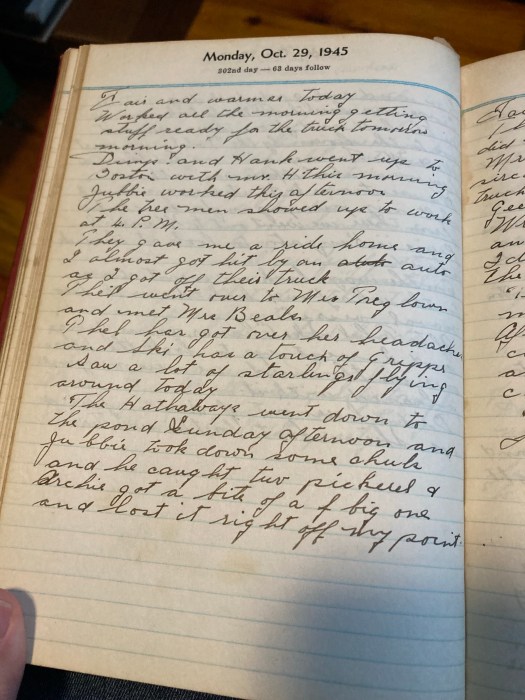 Monday, Oct. 29, 1945
302nd day — 63 days follow
Fair and warmer today
Worked all the morning getting
stuff ready for the truck tomorrow
morning.
Dump and Hank went up to
Boston with Mr. H this morning
Jubbie worked this afternoon
The tree men showed up to work
at 4 P.M.
They gave me a ride home and
I almost got hit by an auto
as I got off their truck
Phil went over to Mrs
and met Mrs Beals
Phil has got over her headache
and Ski has a touch of Grippe
Saw a lot of starlings flying
around today
The Hathaways went down to
the pond Sunday afternoon and
Jubbie took down some chubs
and he caught two pickerel &
Archie got a bite of a big one
and lost it right off my point.
did
truck